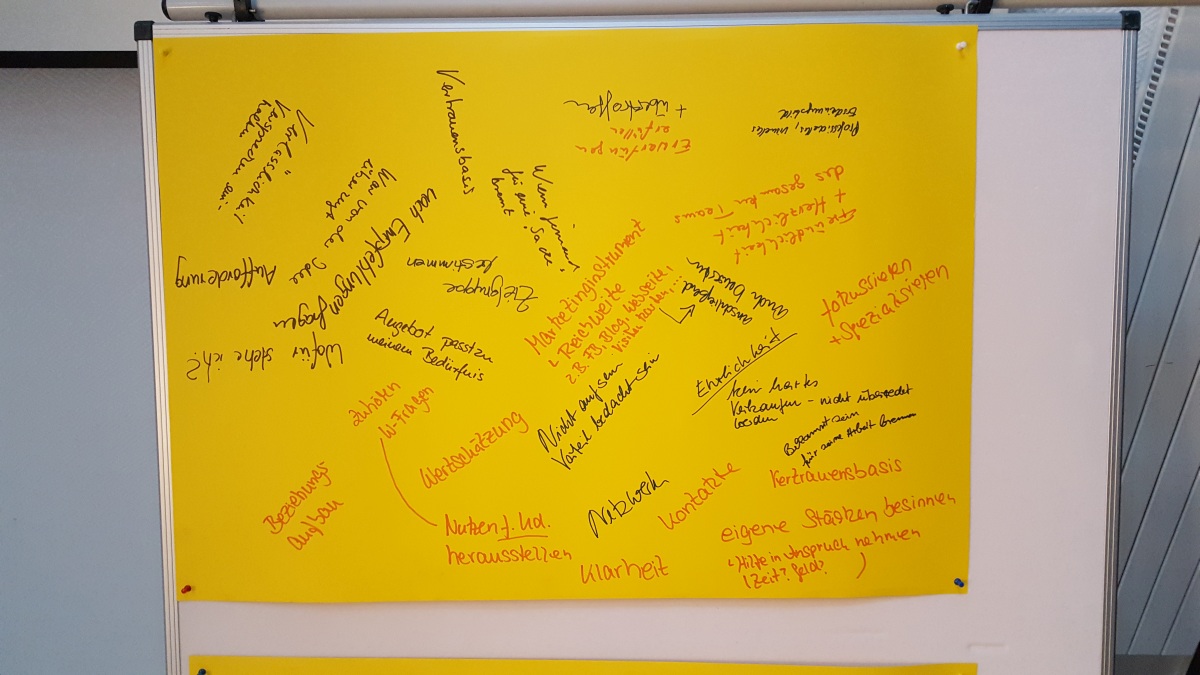 Verlässlichkeit
Versprechen ein-
halten
Vertrauensbasis
Erwartungen
erfüllen
+ übertroffen
War von der Idee
überzeugt
nach Empfehlungen fragen
Wenn jemand
für eine Sache
brennt
Freundlichkeit
+ Herzlichkeit
des gesamten Teams
Aufforderung
Zielgruppe
bestimmen
Wofür stehe ich?
Angebot passt zu
meinem Bedürfnis
Marketinginstrument
Reichweite
z.B. FB, Blog, Webseite,
Visitenkarten, ...
anschließend
fokussieren
+ Spezialisieren
zuhören
W-Fragen
Wertschätzung
Nicht auf sein
Vorteil bedacht sein
Ehrlichkeit
kein hartes
Verkaufen - nicht überredet
werden
Bekannt sein
für seine Arbeit brennen
Vertrauensbasis
Beziehungs-
aufbau
Nutzen f. Kd.
herausstellen
Netzwerk
Kontakte
Klarheit
eigene Stärken besinnen
Hilfe in Anspruch nehmen
(Zeit? Geld?